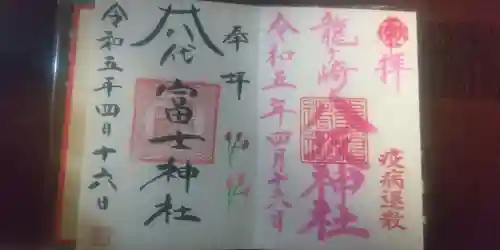 奉拝
龍ヶ崎八坂神社
令和五年四月十六日
疫病退散
奉拝
八代富士神社
令和五年四月十六日